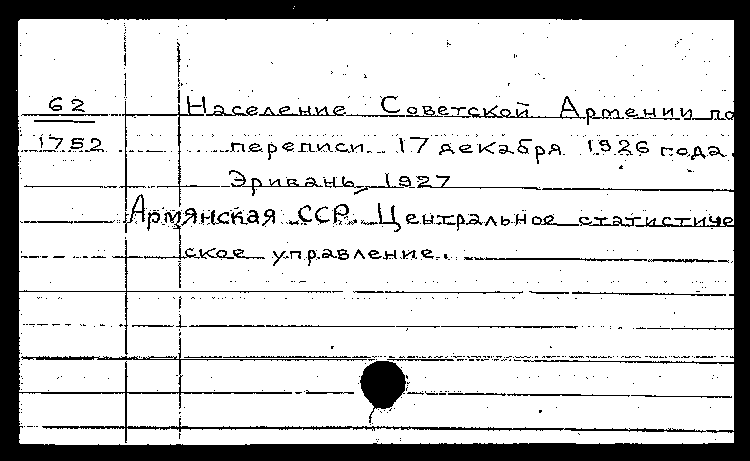 62
1752
Население Советской Армении по
переписи 17 декабря 1926 года.
Эривань, 1927
Армянская ССР. Центральное статистиче
ское управление.